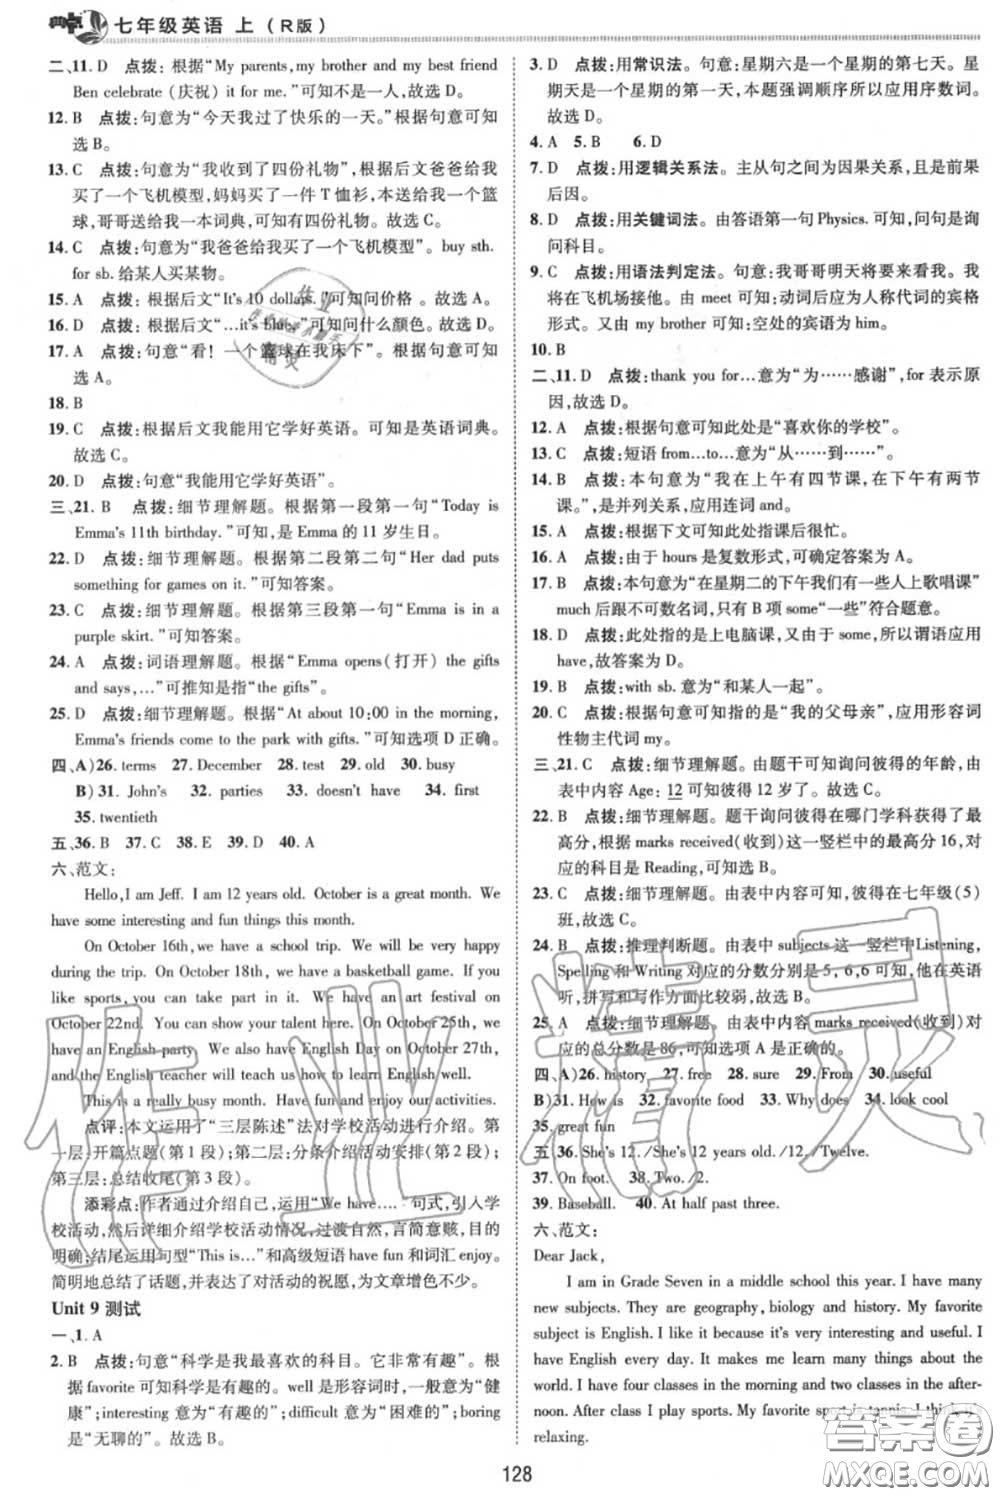 典中点 七年级英语 上 (R版)
二、11. D 点拨:根据“My parents, my brother and my best friend
Ben celebrate (庆祝) it for me.”可知不是一人,故选 D。
12. B 点拨:句意为“今天我过了快乐的一天。”根据句意可知
选 B。
13. C 点拨:句意为“我收到了四份礼物”,根据后文爸爸给我
买了一个飞机模型,妈妈买了一件 T 恤衫,本送给我一个篮
球,哥哥送给我一本词典,可知有四份礼物。故选 C。
14. C 点拨:句意为“我爸爸给我买了一个飞机模型”。buy sth.
for sb. 给某人买某物。
15. A 点拨:根据后文“It's 10 dollars.”可知问价格 。故选 A。
16. D 点拨:根据后文“…it's blue.”可知问什么颜色。故选 D。
17. A 点拨:句意“看! 一个篮球在我床下”。根据句意可知
选 A。
18. B
19. C 点拨:根据后文我能用它学好英语。可知是英语词典。
故选 C。
20. D 点拨:句意“我能用它学好英语”。
三、21. B 点拨:细节理解题。根据第一段第一句“Today is
Emma's 11th birthday.”可知,是 Emma 的 11 岁生日。
22. D 点拨:细节理解题。根据第二段第二句“Her dad puts
something for games on it.”可知答案。
23. C 点拨:细节理解题。根据第三段第一句“Emma is in a
purple skirt.”可知答案。
24. A 点拨:词语理解题。根据“Emma opens(打开) the gifts
and says,…”可推知是指“the gifts”。
25. D 点拨:细节理解题。根据“At about 10:00 in the morning,
Emma's friends come to the park with gifts.”可知选项 D 正确。
四、A)26. terms 27. December 28. test 29. old 30. busy
B)31. John's 32. parties 33. doesn't have 34. first
35. twentieth
五、36. B 37. C 38. E 39. D 40. A
六、范文:
Hello, I am Jeff. I am 12 years old. October is a great month. We
have some interesting and fun things this month.
On October 16th, we have a school trip. We will be very happy
during the trip. On October 18th, we have a basketball game. If you
like sports, you can take part in it. We have an art festival on
October 22nd. You can show your talent here. On October 25th, we
have an English party. We also have English Day on October 27th,
and the English teacher will teach us how to learn English well.
This is a really busy month. Have fun and enjoy our activities.
点评:本文运用了“三层陈述”法对学校活动进行介绍。第
一层:开篇点题(第 1 段);第二层:分条介绍活动安排(第 2 段);
第三层:总结收尾(第 3 段)。
添彩点:作者通过介绍自己,运用“We have….”句式,引入学
校活动,然后详细介绍学校活动情况,过渡自然,言简意赅,目的
明确;结尾运用句型“This is…”和高级短语 have fun 和词汇 enjoy。
简明地总结了话题,并表达了对活动的祝愿,为文章增色不少。
Unit 9 测试
一、1. A
2. B 点拨:句意“科学是我最喜欢的科目。它非常有趣”。根
据 favorite 可知科学是有趣的。well 是形容词时,一般意为“健
康”;interesting 意为“有趣的”;difficult 意为“困难的”;boring
是“无聊的”。故选 B。
3. D 点拨:用常识法。句意:星期六是一个星期的第七天。星
期天是一个星期的第一天,本题强调顺序所以应用序数词。
故选 D。
4. A 5. B 6. D
7. D 点拨:用逻辑关系法。主从句之间为因果关系,且前果
后因。
8. D 点拨:用关键词法。由答语第一句 Physics. 可知,问句是询
问科目。
9. C 点拨:用语法判定法。句意:我哥哥明天将要来看我。我
将在飞机场接他。由 meet 可知:动词后应为人称代词的宾格
形式。又由 my brother 可知:空处的宾语为 him。
10. B
二、11. D 点拨:thank you for…意为“为……感谢”,for 表示原
因,故选 D。
12. A 点拨:根据句意可知此处是“喜欢你的学校”。
13. C 点拨:短语 from…to…意为“从……到……”。
14. B 点拨:本句意为“我在上午有四节课,在下午有两节
课。”,是并列关系,应用连词 and。
15. A 点拨:根据下文可知此处指课后很忙。
16. A 点拨:由于 hours 是复数形式,可确定答案为 A。
17. B 点拨:本句意为“在星期二的下午我们有一些人上歌唱课”
much 后跟不可数名词,只有 B 项 some“一些”符合题意。
18. D 点拨:此处指的是上电脑课,又由于 some,所以谓语应用
have,故答案为 D。
19. B 点拨:with sb. 意为“和某人一起”。
20. C 点拨:根据句意可知指的是“我的父母亲”,应用形容词
性物主代词 my。
三、21. C 点拨:细节理解题。根据题意可知询问彼得的年龄,由
表中内容 Age: 12 可知彼得 12 岁了。故选 C。
22. B 点拨:细节理解题。题干询问彼得在哪门学科获得了最
高分,根据 marks received(收到)这一竖栏中的最高分 16,对
应的科目是 Reading,可知选 B。
23. C 点拨:细节理解题。由表中内容可知,彼得在七年级(5)
班,故选 C。
24. B 点拨:推理判断题。由表中 subjects 这一竖栏中 Listening,
Spelling 和 Writing 对应的分数分别是 5, 6, 6 可知,他在英语
听,拼写和写作方面比较弱,故选 B。
25. A 点拨:细节理解题。由表中内容 marks received(收到)对
应的总分数是 86,可知选项 A 是正确的。
四、A)26. history 27. free 28. sure 29. From 30. useful
B)31. How is 32. favorite food 33. Why does 34. look cool
35. great fun
五、36. She's 12. /She's 12 years old. /12. /Twelve.
37. On foot. 38. Two. /2.
39. Baseball. 40. At half past three.
六、范文:
Dear Jack,
I am in Grade Seven in a middle school this year. I have many
new subjects. They are geography, biology and history. My favorite
subject is English. I like it because it's very interesting and useful. I
have English every day. It makes me learn many things about the
world. I have four classes in the morning and two classes in the after-
noon. After class I play sports. My favorite sport is tennis. I think it's
relaxing.
128
作业精灵
答案圈
MXQE.COM